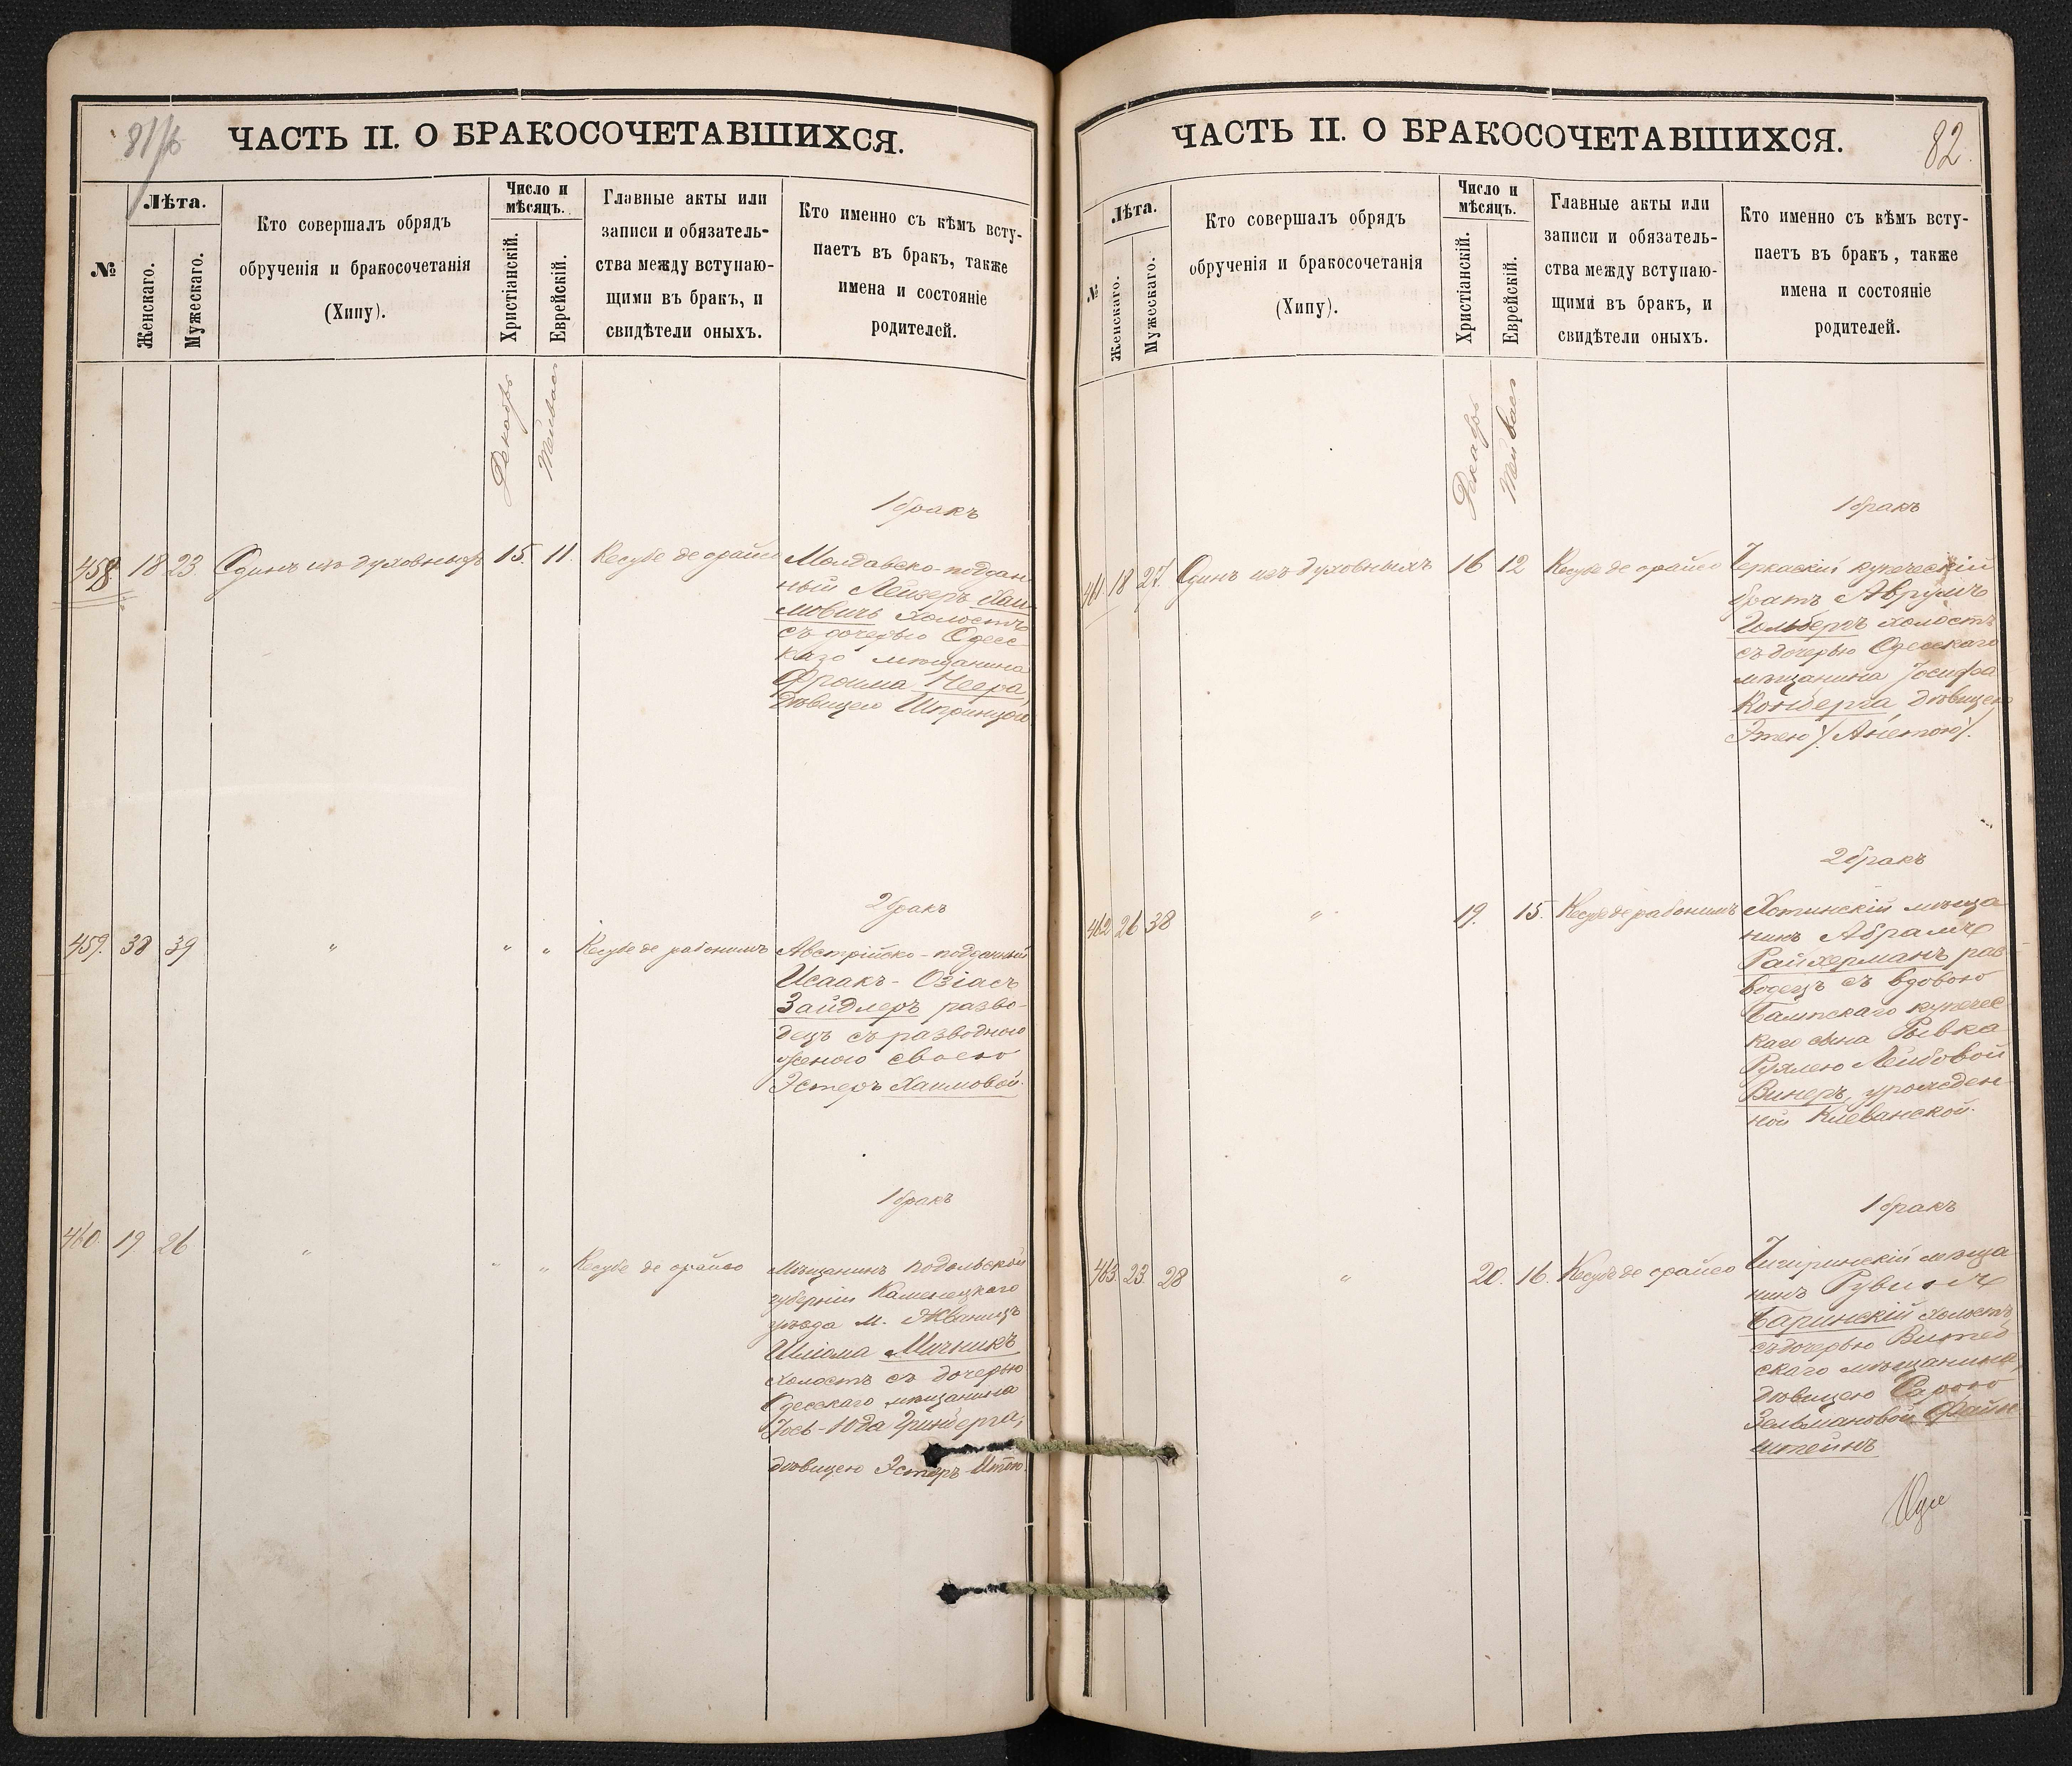 81/об
ЧАСТЬ II. О БРАКОСОЧЕТАВШИХСЯ.
№
Лѣта.
Женскаго.
Мужескаго.
Кто совершалъ обрядъ
обрученія и бракосочетанія
(Хипу).
Число и
мѣсяцъ.
Христіанскій.
Еврейскій.
Главные акты или
записи и обязатель-
ства между вступаю-
щими въ бракъ, и
свидѣтели оныхъ.
Кто именно съ кѣмъ всту-
паетъ въ бракъ, также
имена и состояніе
родителей.
Декабрь
Тейвас
1 бракъ
458. 18 23. Одинъ изъ духовныхъ 15. 11. Кесубе де орайсо Молдавско-поддан
ный Лейзеръ Хаи
мовичъ холостъ
съ дочерью Одес
каго мѣщанина
Фроима Неера,
дѣвицею Шпринцою
2 бракъ
459. 38 39 " " " Кесубе де рабонимъ Австрійско-подданный
Исаакъ-Озіасъ
Зайдлеръ разво-
децъ съ разводною
женою своею
Эстеръ Хаимовой.
1 бракъ
460. 19 26 " " " Кесубе де орайсо Мѣщанинъ Подольской
губерніи Каменецкаго
уѣзда м. Жванецъ
Шліома Мичникъ
холостъ съ дочерью
Одесскаго мѣщанина
Іось-Юда Гринберга,
дѣвицею Эстеръ-Итою.
82.
ЧАСТЬ II. О БРАКОСОЧЕТАВШИХСЯ.
№
Лѣта.
Женскаго.
Мужескаго.
Кто совершалъ обрядъ
обрученія и бракосочетанія
(Хипу).
Число и
мѣсяцъ.
Христіанскій.
Еврейскій.
Главные акты или
записи и обязатель-
ства между вступаю-
щими въ бракъ, и
свидѣтели оныхъ.
Кто именно съ кѣмъ всту-
паетъ въ бракъ, также
имена и состояніе
родителей.
Декабрь
Тейвас
1 бракъ
461 18 27. Одинъ изъ духовныхъ 16 12 Кесубе де орайсо Черкаскій купеческій
братъ Аврумъ
холостъ
съ дочерью Одесскаго
мѣщанина Іосифа
дѣвицею
Этею /Анетою/.
2 бракъ
462 26 38 " 19. 15. Кесубе де рабонимъ Хотинскій мѣща
нинъ Абрамъ
Райхерманъ раз
водецъ съ вдовою
Балтскаго купечес
каго сына Рывка
Рухлею Лейбовой
Винеръ, урожден-
ной Клеванской.
1 бракъ
463. 23. 28 " 20. 16. Кесубе де орайсо Чигиринскій мѣща
нинъ Рувинъ
Баринскій холостъ,
съ дочерью Витеб
скаго мѣщанина,
дѣвицею Сарою
Зельмановой Файн
штейнъ